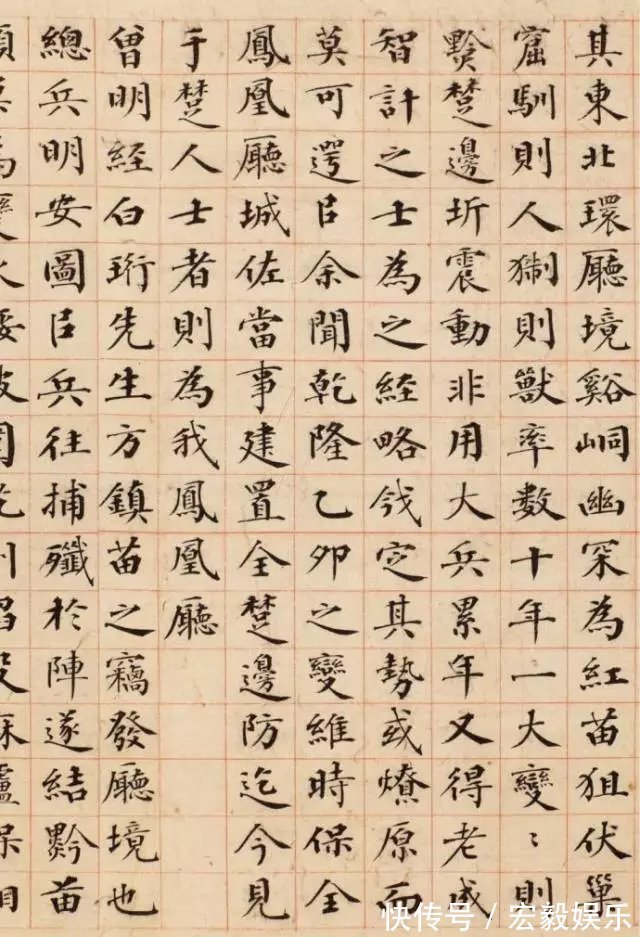 其東北環廳境谿峒幽罙為紅苗狙伏巢
窟馴則人猘則獸率數十年一大變〻則
黔楚邊圻震動非用大兵累年又得老成
智計之士為之經略定其勢或燎原而
莫可遏㠯余聞乾隆乙卯之變維時保全
鳳凰廳城佐當事建置全楚邊防迄今見
于楚人士者則為我鳳凰廳
曾明經白珩先生方鎮苗之竊發廳境也
總兵明安圖㠯兵往捕殲於陣遂結黔苗
快传号 / 宏毅娱乐